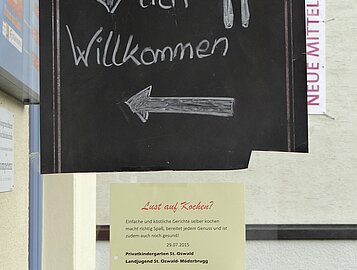 Willkommen
NEUE MITTEL
Lust auf Kochen?
Einfache und köstliche Gerichte selber kochen
macht richtig Spaß, bereitet jedem Genuss und ist
zudem auch noch gesund!
29.07.2015
Privatkindergarten St. Oswald
Landjugend St. Oswald- Möderbrugg